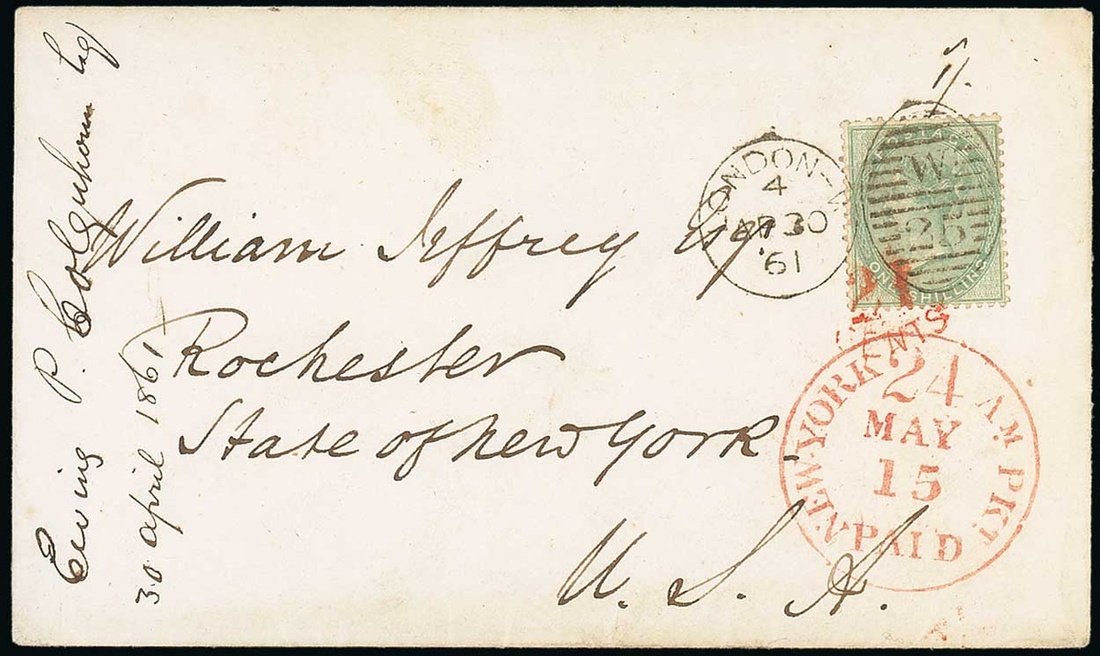 Ewing P. Colquhoun Esq
30 April 1861
William Jeffrey Esq.
Rochester
State of New York.
U. S. A.
1/.
LONDON-W
4
AP 30
61
POSTAGE
W
25
ONE SHILLING
21
CENTS
NEW-YORK AM. PKT.
24
MAY
15
PAID